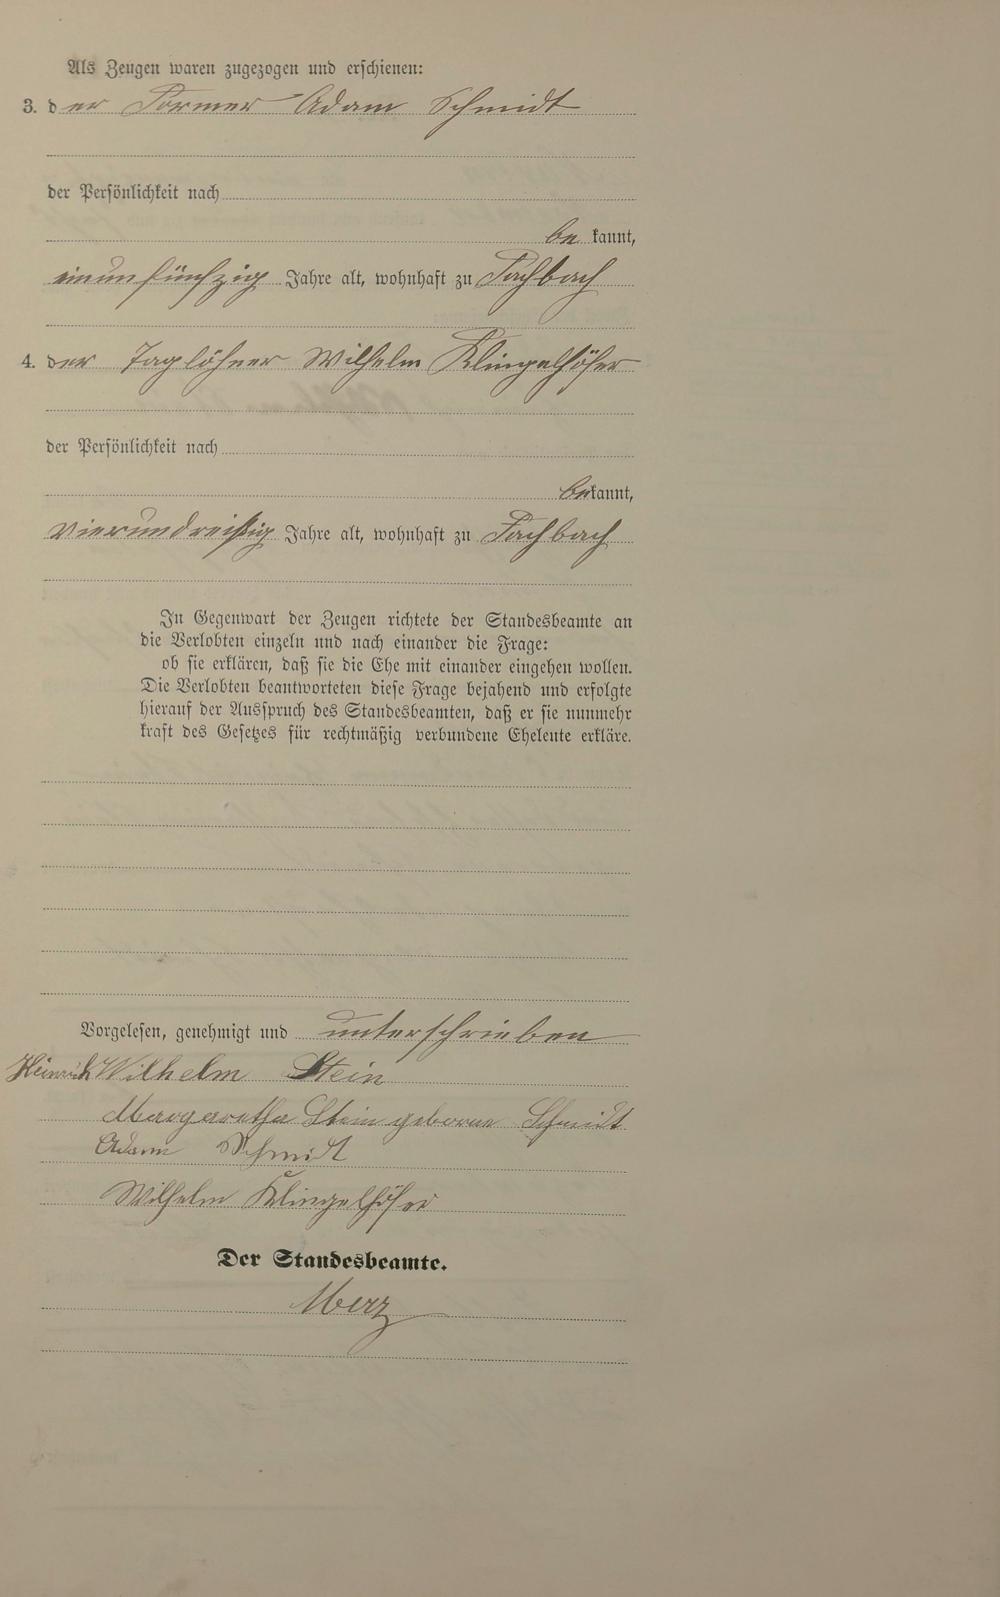 Als Zeugen waren zugezogen und erschienen:
3. der Former Adam Schmidt
der Persönlichkeit nach
be kannt,
einunfünfzig Jahre alt, wohnhaft zu Fachbach
4. der Taglöhner Wilhelm Klingelhöfer
der Persönlichkeit nach
bekannt,
vierundreißig Jahre alt, wohnhaft zu Fachbach
In Gegenwart der Zeugen richtete der Standesbeamte an
die Verlobten einzeln und nach einander die Frage:
ob sie erklären, daß sie die Ehe mit einander eingehen wollen.
Die Verlobten beantworteten diese Frage bejahend und erfolgte
hierauf der Ausspruch des Standesbeamten, daß er sie nunmehr
kraft des Gesetzes für rechtmäßig verbundene Eheleute erkläre.
Vorgelesen, genehmigt und unterschrieben
Heinrich Wilhelm Stein
Margaretha Stein geborne Schmidt
Adam Schmidt
Wilhelm Klingelhöfer
Der Standesbeamte.
Merz